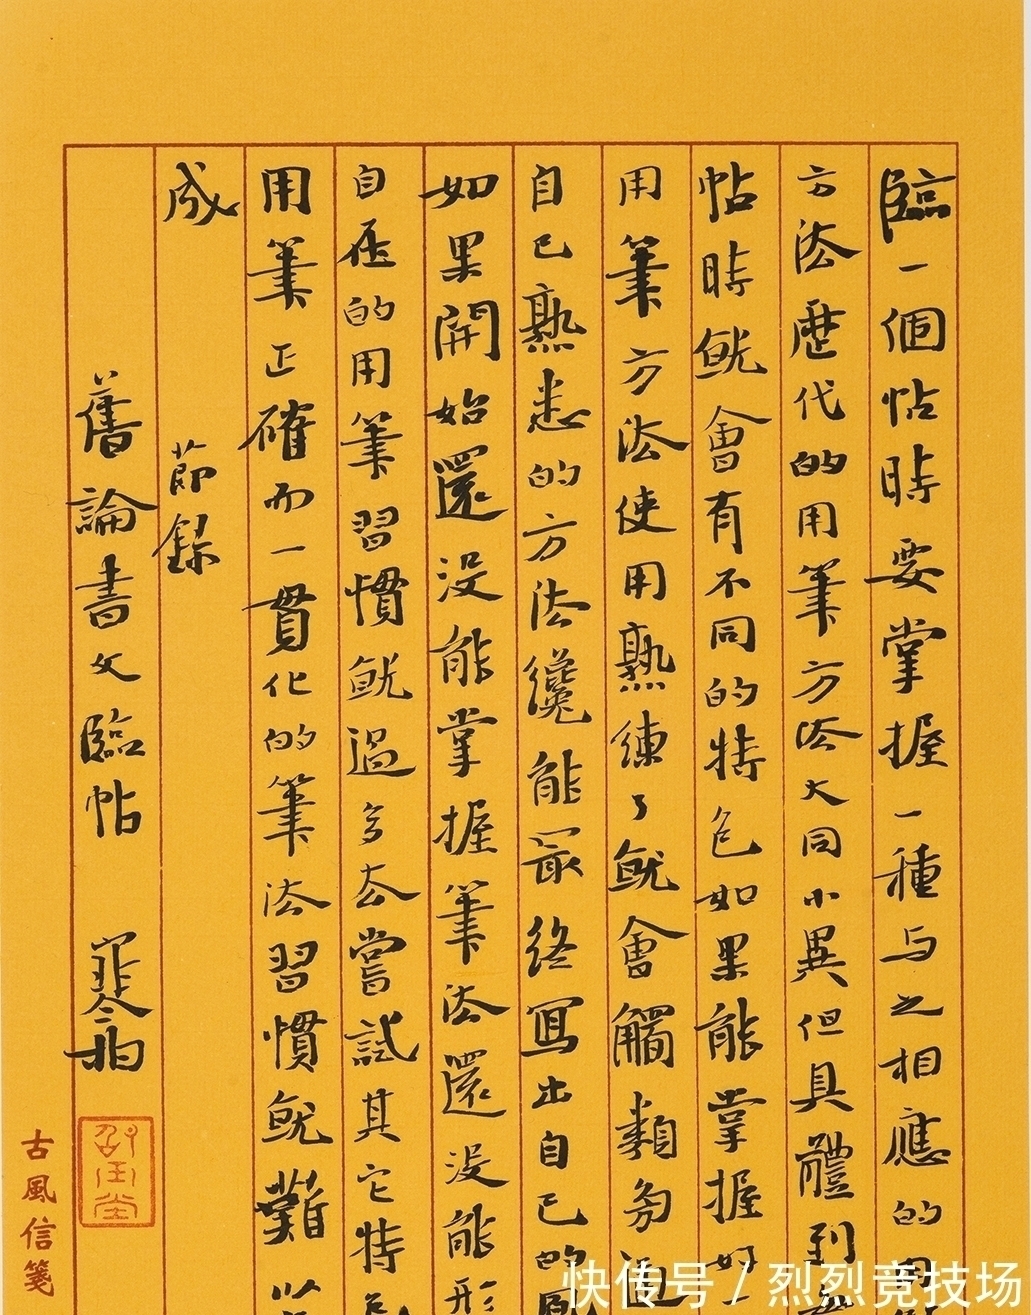 臨一個帖時要掌握一種与之相應的用
方法歷代的用筆方法大同小異但具體到
帖時就會有不同的特色如果能掌握好一
用筆方法使用熟練了就會觸類旁通
自己熟悉的方法纔能最終寫出自己的
如果開始還没能掌握筆法還没能形
自在的用筆習慣就過多去嘗試其它特色
用筆正確而一貫化的筆法習慣就難以
成
節錄
舊論書文臨帖
古風信箋
快传号 / 烈烈竞技场